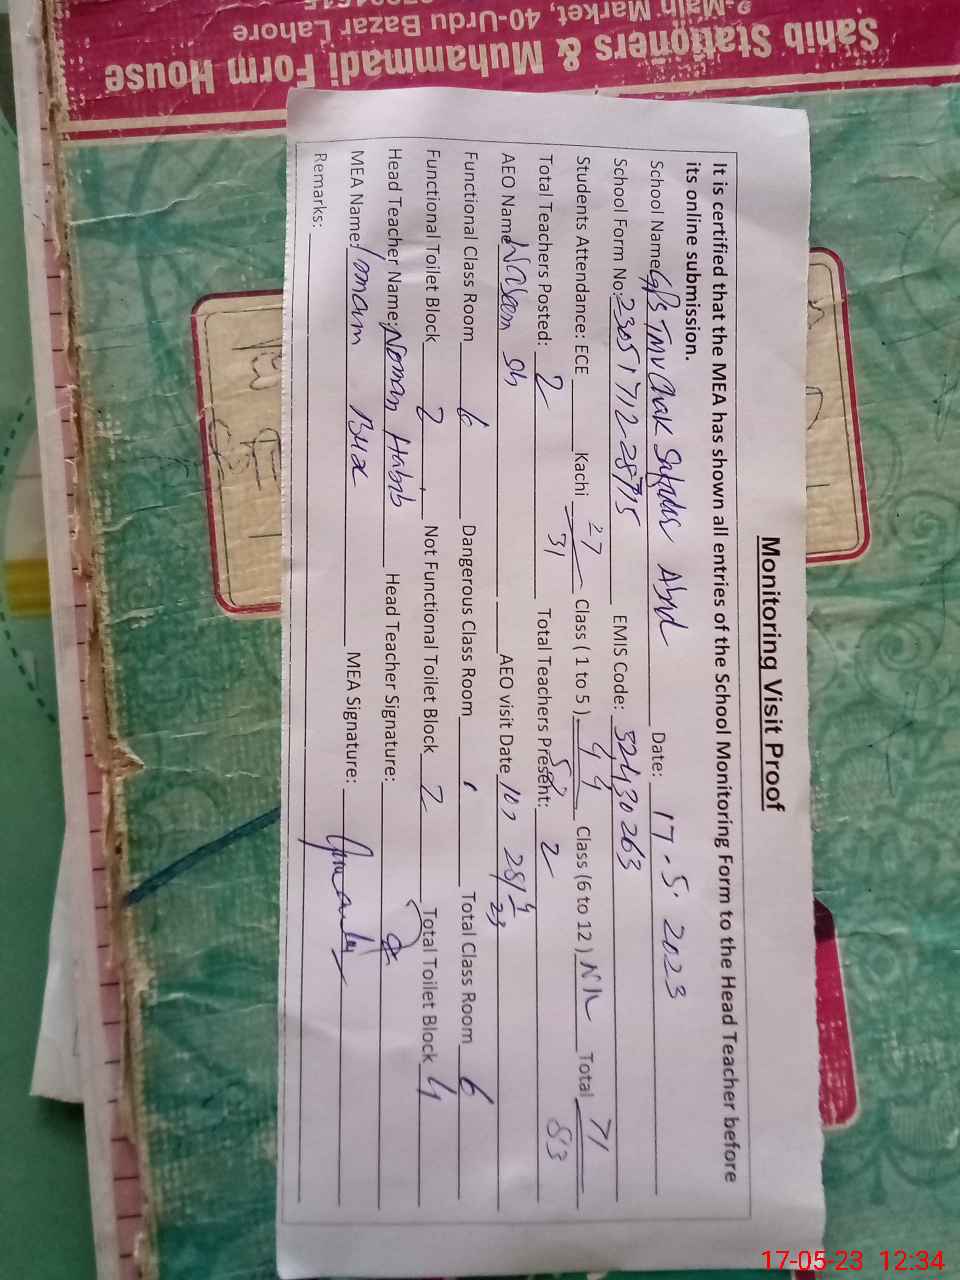 Sahib Stationers & Muhammadi Form House
Market, 40-Urdu Bazar Lahore
Monitoring Visit Proof
It is certified that the MEA has shown all entries of the School Monitoring Form to the Head Teacher before
its online submission.
School Name: G/S TMV Chak Date: 17.5.2023
School Form No: EMIS Code: 32430263
Students Attendance: ECE Kachi 27/31 Class ( 1 to 5 ) 44/52 Class (6 to 12 ) Total 71/83
Total Teachers Posted: 2 Total Teachers Present: 2
AEO Name AEO visit Date 28/4/23
Functional Class Room 6 Dangerous Class Room Total Class Room 6
Functional Toilet Block 2 Not Functional Toilet Block 2 Total Toilet Block 4
Head Teacher Name: Noman Habib Head Teacher Signature:
MEA Name: Imam Bux MEA Signature:
Remarks:
17-05-23 12:34